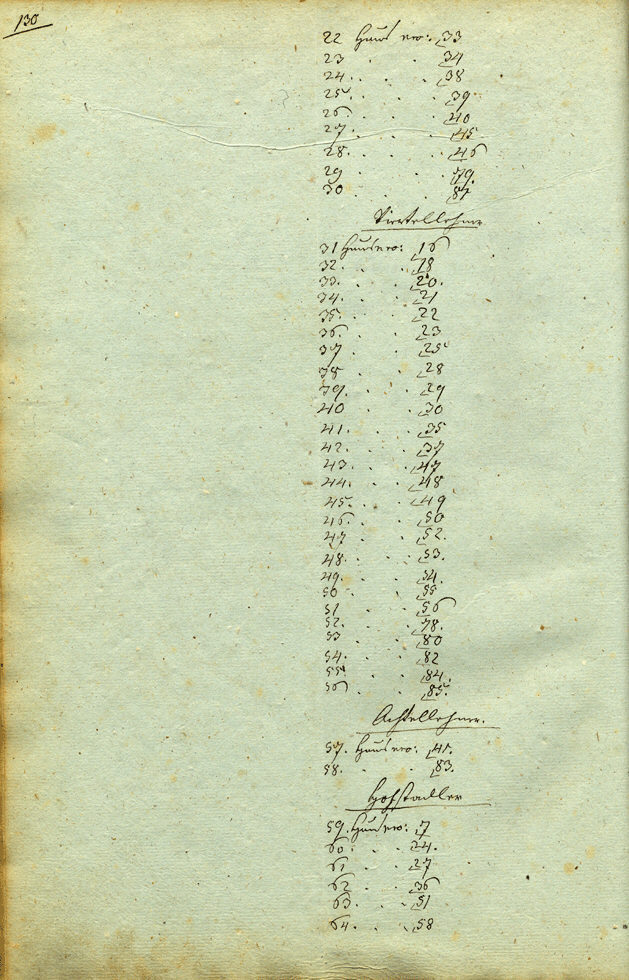 130
22 Haus nro: 33
23 . . 34
24 . . . 38
25 . . . 39
26 . . . 40
27. . . . 45
28. . . . 46
29 . . . 79.
30 . . . 87
Viertellehner
31 Hausnro: 16
32. . . 18
33. . . 20.
34. . . 21
35. . . 22
36. . . 23
37 . . 25
38 . . 28
39. . . 29
40 . . 30
41. . . 35
42. . . 37
43. . . 47
44. . . 48
45. . . 49
46. . . 50
47 . . 52.
48. . . 53.
49. . . 54.
50 . . 55
51 . . 56
52. . . 78.
53 . . 80
54. . . 82
55. . . 84.
56 . . 85.
Achtellehner.
57. Hausnro: 41.
58. . . 83.
Hofstadler
59. Hausnro: 7
60 . . 24.
61 . . 27
62 . . 36
63. . . 51
64. . . 58